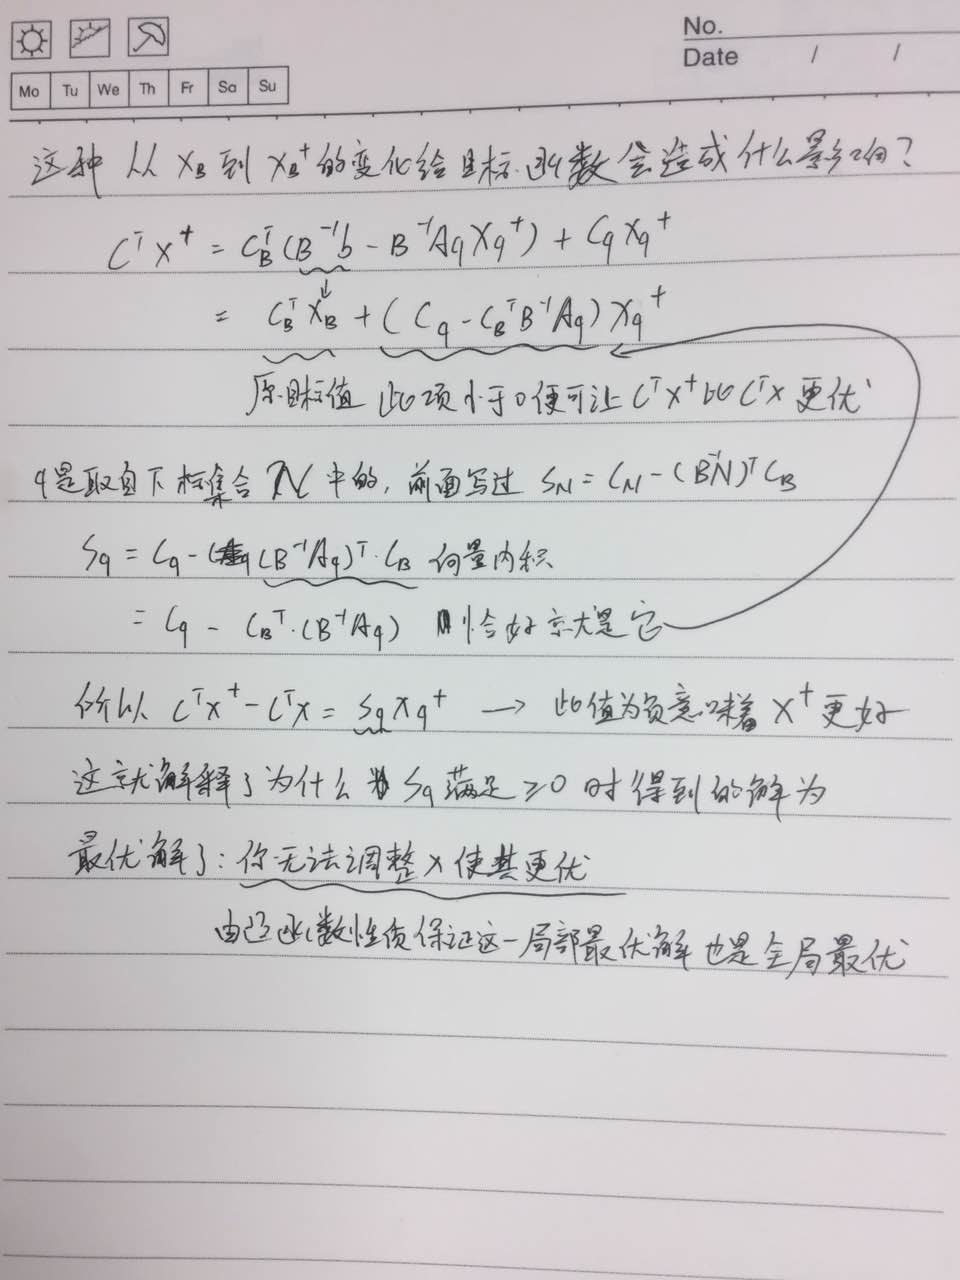 No.
Date / /
Mo Tu We Th Fr Sa Su
这种从 X_B 到 X_B⁺ 的变化给目标函数会造成什么影响?
CᵀX⁺ = C_Bᵀ(B⁻¹b - B⁻¹A_qX_q⁺) + C_qX_q⁺
= C_BᵀX_B + (C_q - C_BᵀB⁻¹A_q)X_q⁺
原目标值 此项小于0便可让 CᵀX⁺ 比 CᵀX 更优
q是取自下标集合 N 中的, 前面写过 S_N = C_N - (B⁻¹N)ᵀC_B
S_q = C_q - (B⁻¹A_q)ᵀ·C_B 向量内积
= C_q - C_Bᵀ·(B⁻¹A_q) 恰好就是它
所以 CᵀX⁺ - CᵀX = S_qX_q⁺ → 此值为负意味着 X⁺ 更好
这就解释了为什么 S_q 满足 ≥0 时得到的解为
最优解了: 你无法调整 X 使其更优
由凸函数性质保证这一局部最优解也是全局最优